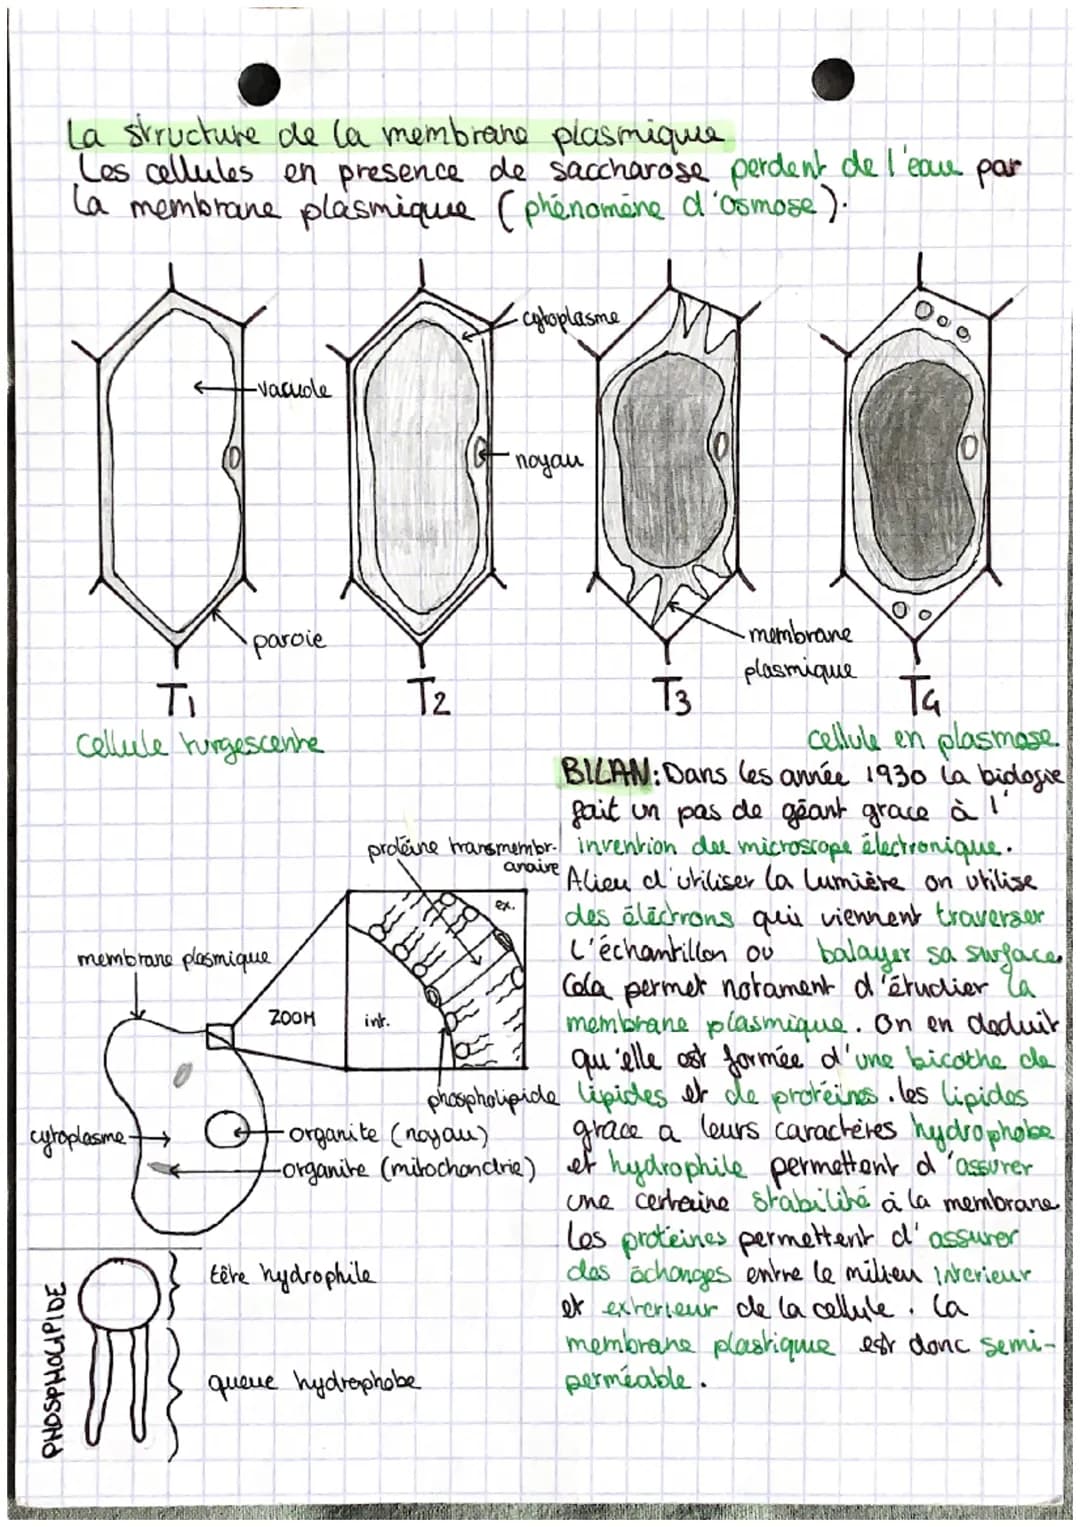 La structure de la membrane plasmique
Les cellules en presence de saccharose perdent de l'eau par
la membrane plasmique (phénomène d'osmose).
cytoplasme
vacuole
noyau
paroie
membrane
plasmique
T1
T2
T3
T4
cellule turgescente
cellule en plasmose.
BILAN: Dans les année 1930 la biologie
fait un pas de géant grace à l'
invention du microscope électronique.
Alieu d'utiliser la lumière on utilise
des électrons qui viennent traverser
l'échantillon ou balayer sa surface.
Cela permet notament d'étudier la
membrane plasmique. On en deduit
qu'elle est formée d'une bicothe de
lipides et de protéines. les lipides
grace a leurs caractères hydrophobe
et hydrophile permettent d'assurer
une certaine stabilité à la membrane.
Les protéines permettent d'assurer
des échanges entre le milieu interieur
et exterieur de la cellule. La
membrane plastique est donc semi-
perméable.
protéine transmembr-
anaire
ex.
membrane plasmique
ZOOM
int.
phospholipide
cytoplasme
organite (noyau)
organite (mitochondrie)
PHOSPHOLIPIDE
tête hydrophile
queue hydrophobe